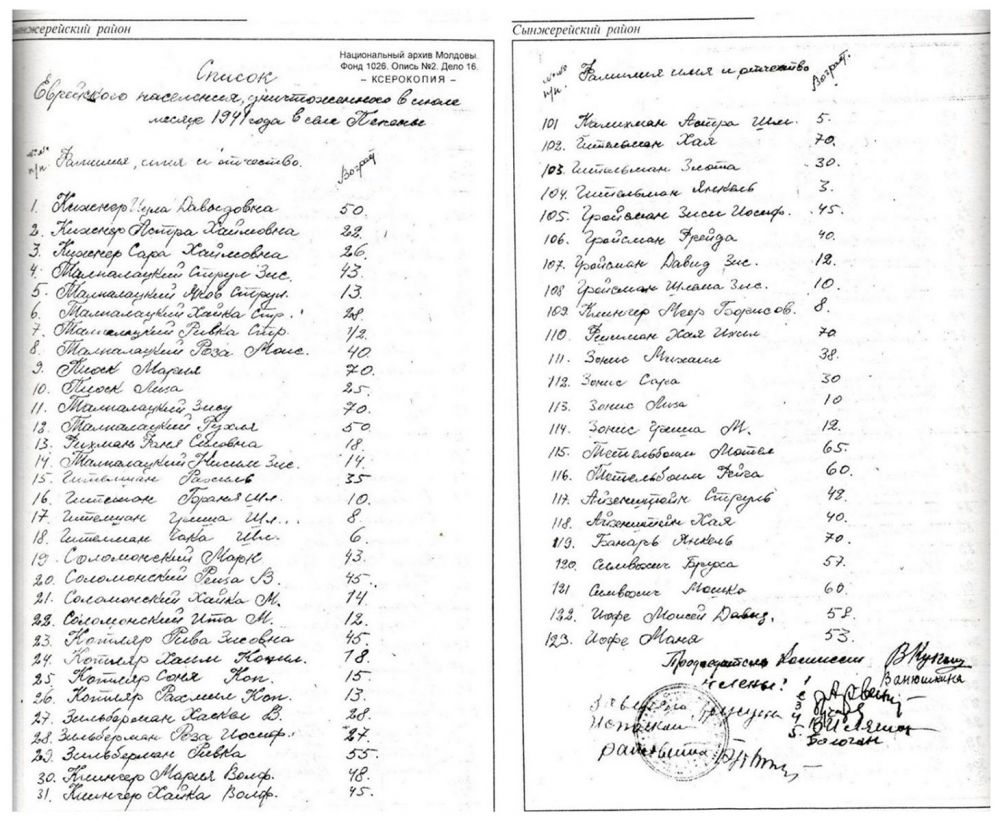 Сынжерейский район
Национальный архив Молдовы.
Фонд 1026. Опись №2. Дело 16.
– КСЕРОКОПИЯ –
Список
Еврейского населения, уничтоженного в июле
месяце 1941 года в селе Пепены
№№ п/п. Фамилия, имя и отчество. Возраст
1. Кижнер Шула Давыдовна 50.
2. Кижнер Эстра Хаймовна 22.
3. Кижнер Сара Хаймовна 26.
4. Талпалацкий Струл Зис. 43.
5. Талпалацкий Яков Струл. 13.
6. Талпалацкий Хайка Стр. 28.
7. Талпалацкий Ривка Стр. 1/2.
8. Талпалацкий Роза Моис. 40.
9. Пиоск Мария 70.
10. Пиоск Лиза 25.
11. Талпалацкий Зису 70.
12. Талпалацкий Рухля 50.
13. Рихман Ханя Сиховна 18.
14. Талпалацкий Нисим Зис. 14.
15. Штелман Рахиль 35
16. Штелман Браня Шл. 10.
17. Штелман Гриша Шл... 8.
18. Штелман Шл. 6.
19. Соломонский Марк 43.
20. Соломонский Рейза В. 45.
21. Соломонский Хайка М. 14.
22. Соломонский Ита М. 12.
23. Котляр Рива Зисовна 45.
24. Котляр Хаим Копил. 18.
25. Котляр Соня Коп. 15.
26. Котляр Рахмил Коп. 13.
27. Зильберман Хаскы В. 28.
28. Зильберман Роза Иосиф. 27.
29. Зильберман Ривка 55.
30. Клингер Мария Волф. 48.
31. Клингер Хайка Волф. 45.
Сынжерейский район
№№ п/п. Фамилия имя и отчество Возраст.
101 Калихман Астра Шли. 5.
102. Гительман Хая 70.
103. Гительман Злота 30.
104. Гительман Янкель 3.
105. Гройсман Зиси Иосиф. 45.
106. Гройсман Фрейда 40.
107. Гройсман Давид Зис. 12.
108 Гройсман Шлама Зис. 10.
109. Клингер Меер Борисов. 8.
110. Хая 70.
111. Зонис Михаил 38.
112. Зонис Сара 30
113. Зонис Лиза 10
114. Зонис Гриша М. 12.
115. Тетельбоим Мотел 65.
116. Тетельбоим Фейга 60.
117. Айзенштейн Струль 48.
118. Айзенштейн Хая 40.
119. Банарь Янкель 70.
120. Симвович Бруха 57.
121 Симвович Мошка 60.
122 Иофе Моисей Давид. 58.
123. Иофе Маня 53.
Председатель Комиссии
Ванюшкина
Члены:
Бологан